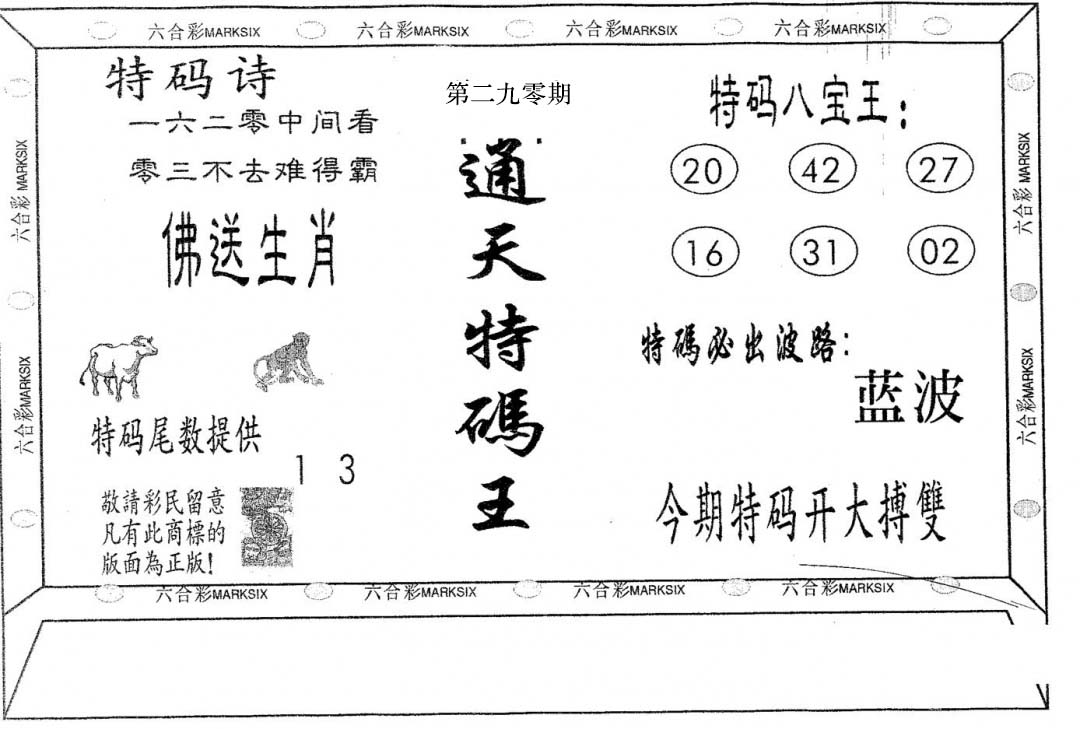 六合彩MARKSIX 六合彩MARKSIX 六合彩MARKSIX 六合彩MARKSIX
特码诗
第二九零期
特码八宝王：
一六二零中间看
零三不去难得霸
20 42 27
16 31 02
佛送生肖
通天特碼王
特碼必出波路：
蓝波
特码尾数提供
1 3
今期特码开大搏雙
敬請彩民留意
凡有此商標的
版面為正版！
六合彩 MARKSIX
六合彩MARKSIX
六合彩 MARKSIX
六合彩MARKSIX
六合彩MARKSIX 六合彩MARKSIX 六合彩MARKSIX 六合彩MARKSIX